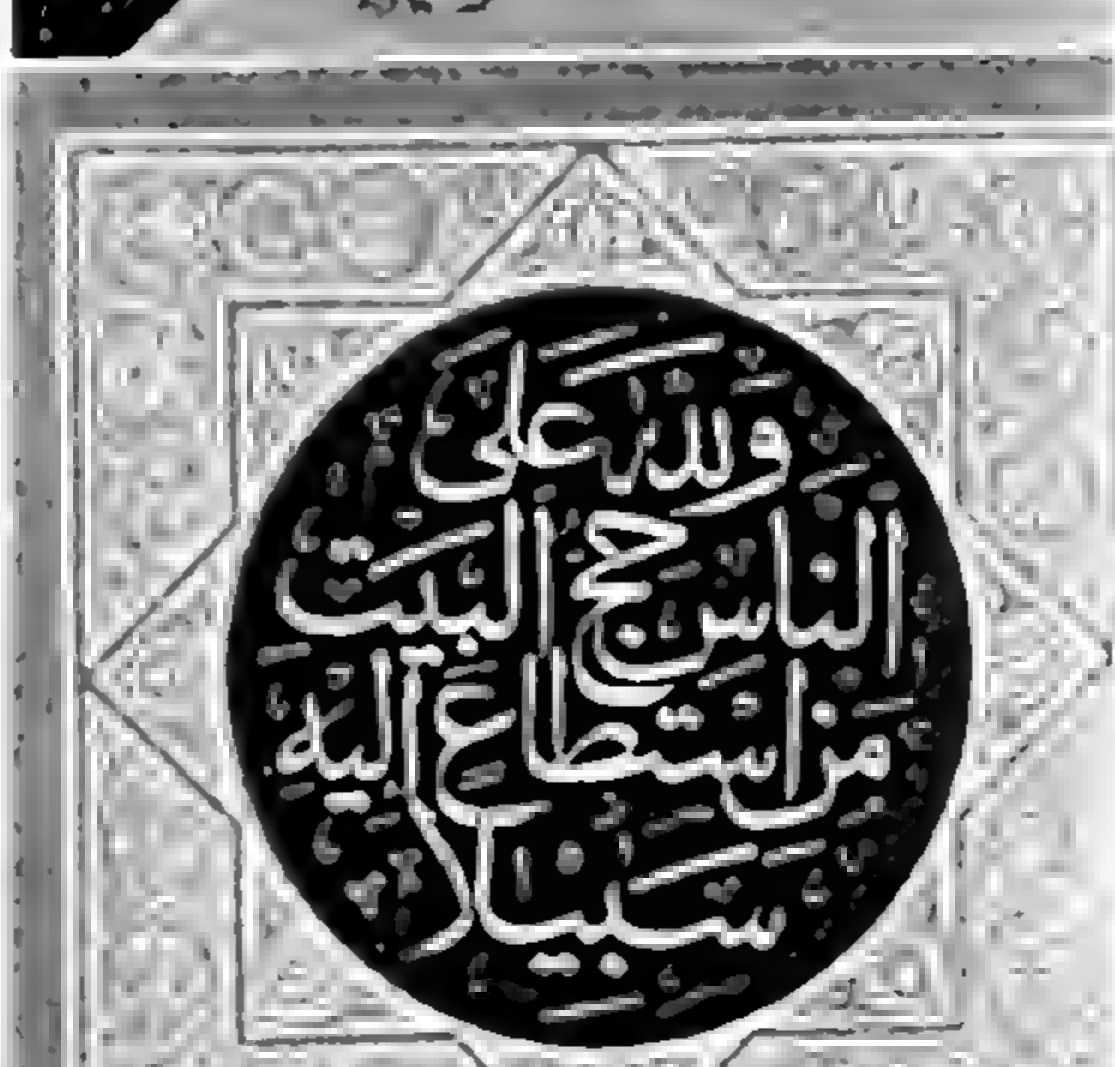 ولله على
الناس حج البيت
من استطاع إليه
سبيلا